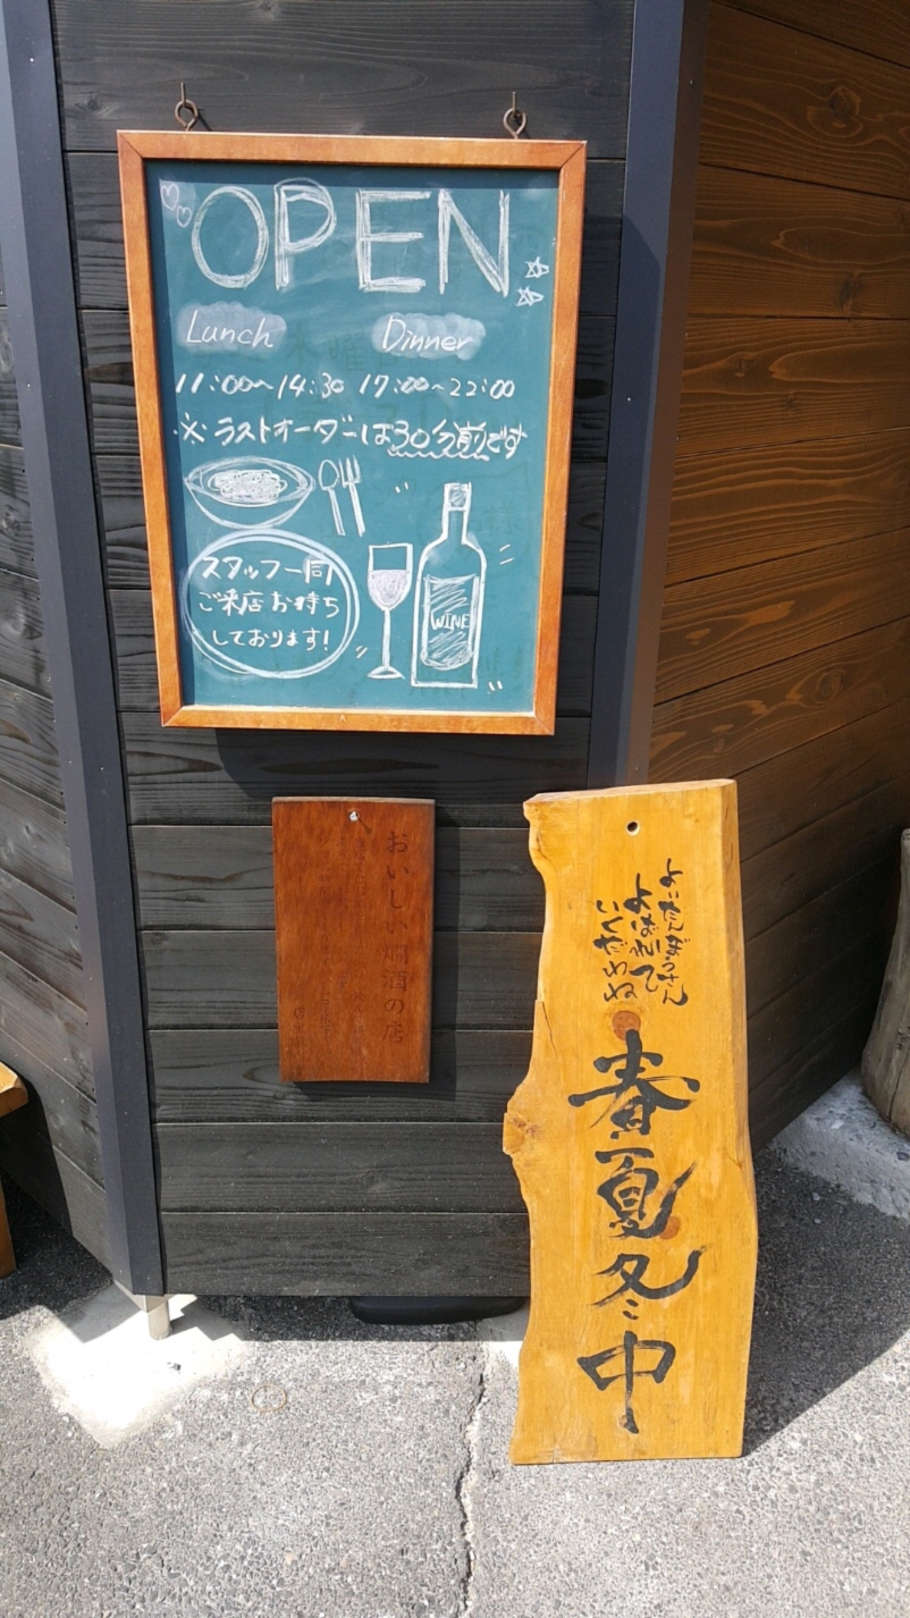 OPEN
Lunch
Dinner
11:00~14:30
17:00~22:00
※ラストオーダーは30分前です
スタッフ一同
ご来店お待ち
しております!
WINE
おいしい燗酒の店
よいたんぼうさん
よばれて
いくだわね
春夏冬中